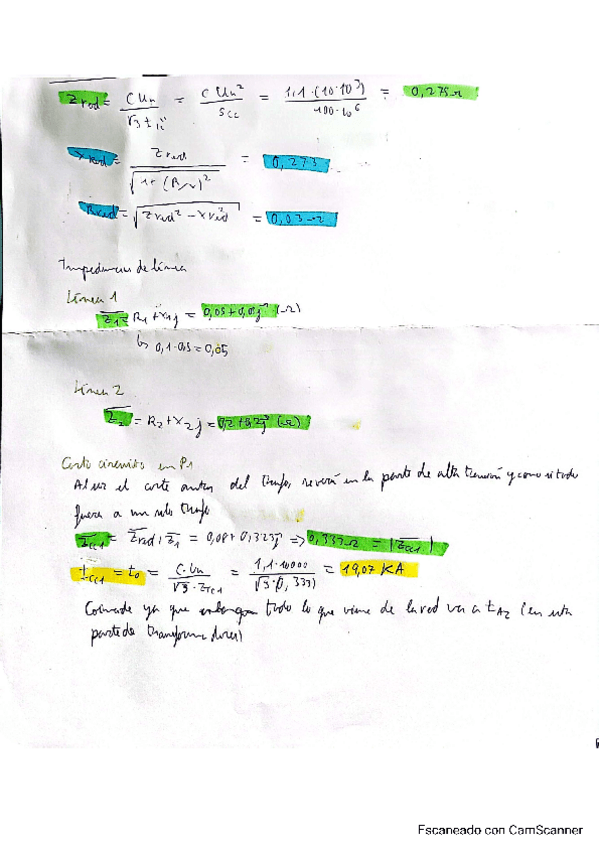 Zred = c Un / √3 I"k = c Un² / Scc = 1,1·(10·10³) / 400·10⁶ = 0,275 Ω
Xred = Zred / √1+(R/x)² = 0,273
Rred = √Zred² - Xred² = 0,03 Ω
Impedancias de línea
Línea 1
Z1 = R1+X1j = 0,05+0,05j (Ω)
↳ 0,1·0,5=0,05
Línea 2
Z2 = R2+X2j = 0,2+0,2j (Ω)
Corto circuito en P1
Al ser el corte antes del trafo, se verá en la parte de alta tensión y como si todo
fuera a un solo trafo
Zcc1 = Zred + Z1 = 0,08+0,323j => 0,333 Ω = |Zcc1|
Icc1 = I0 = C·Un / √3·Zcc1 = 1,1·10000 / √3·(0,333) = 19,07 KA
Coincide ya que todo lo que viene de la red va a tA2 (en esta
parte de transformadores)
Escaneado con CamScanner